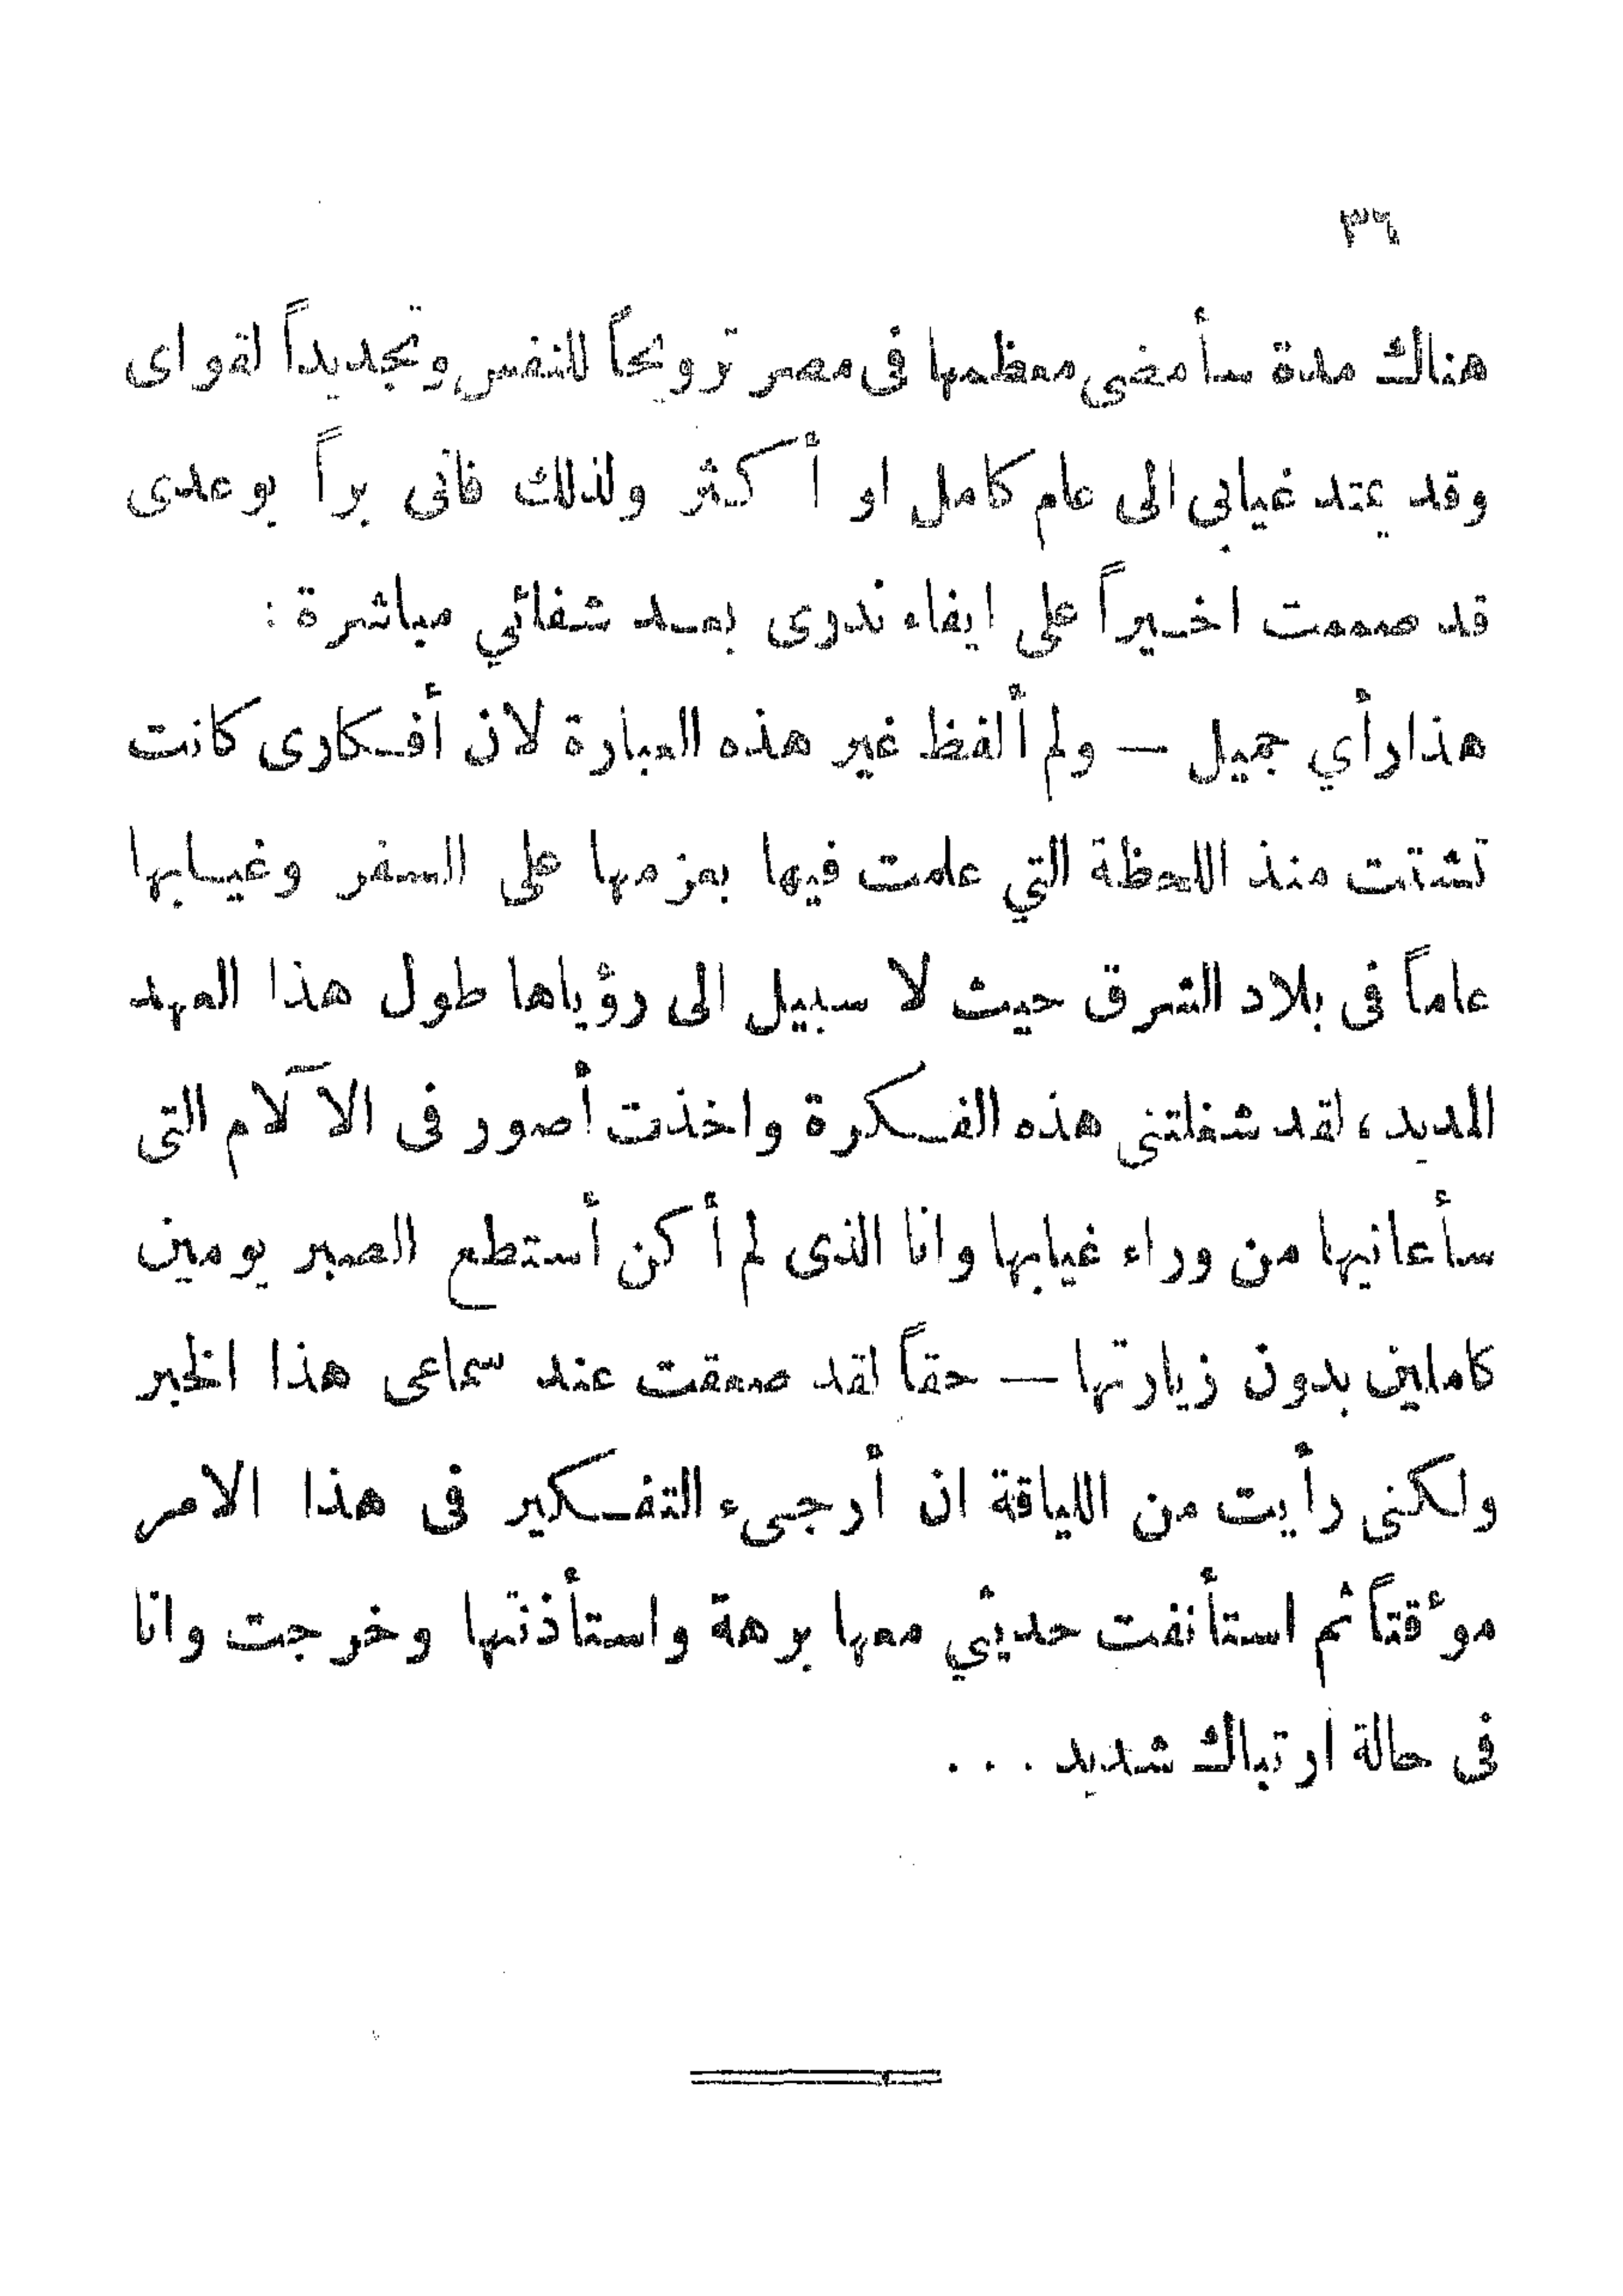 ٣٦
هناك مدة سأمضى معظمها فى مصر ترويحاً للنفس وتجديداً لقواى
وقد يمتد غيابي الى عام كامل او أكثر ولذلك فانى براً بوعدى
قد صممت اخيراً على ايفاء نذرى بعد شفائي مباشرة :
هذا رأي جميل — ولم ألفظ غير هذه العبارة لان أفكارى كانت
تشتتت منذ اللحظة التي علمت فيها بعزمها على السفر وغيابها
عاماً فى بلاد الشرق حيث لا سبيل الى رؤياها طول هذا العهد
المديد ، لقد شغلتنى هذه الفكرة واخذت أصور فى الآلام التى
سأعانيها من وراء غيابها وانا الذى لم أكن أستطع الصبر يومين
كاملين بدون زيارتها — حقاً لقد صعقت عند سماعى هذا الخبر
ولكنى رأيت من اللياقة ان أرجىء التفكير فى هذا الامر
مؤقتاً ثم استأنفت حديثي معها برهة واستأذنتها وخرجت وانا
فى حالة ارتباك شديد . . .